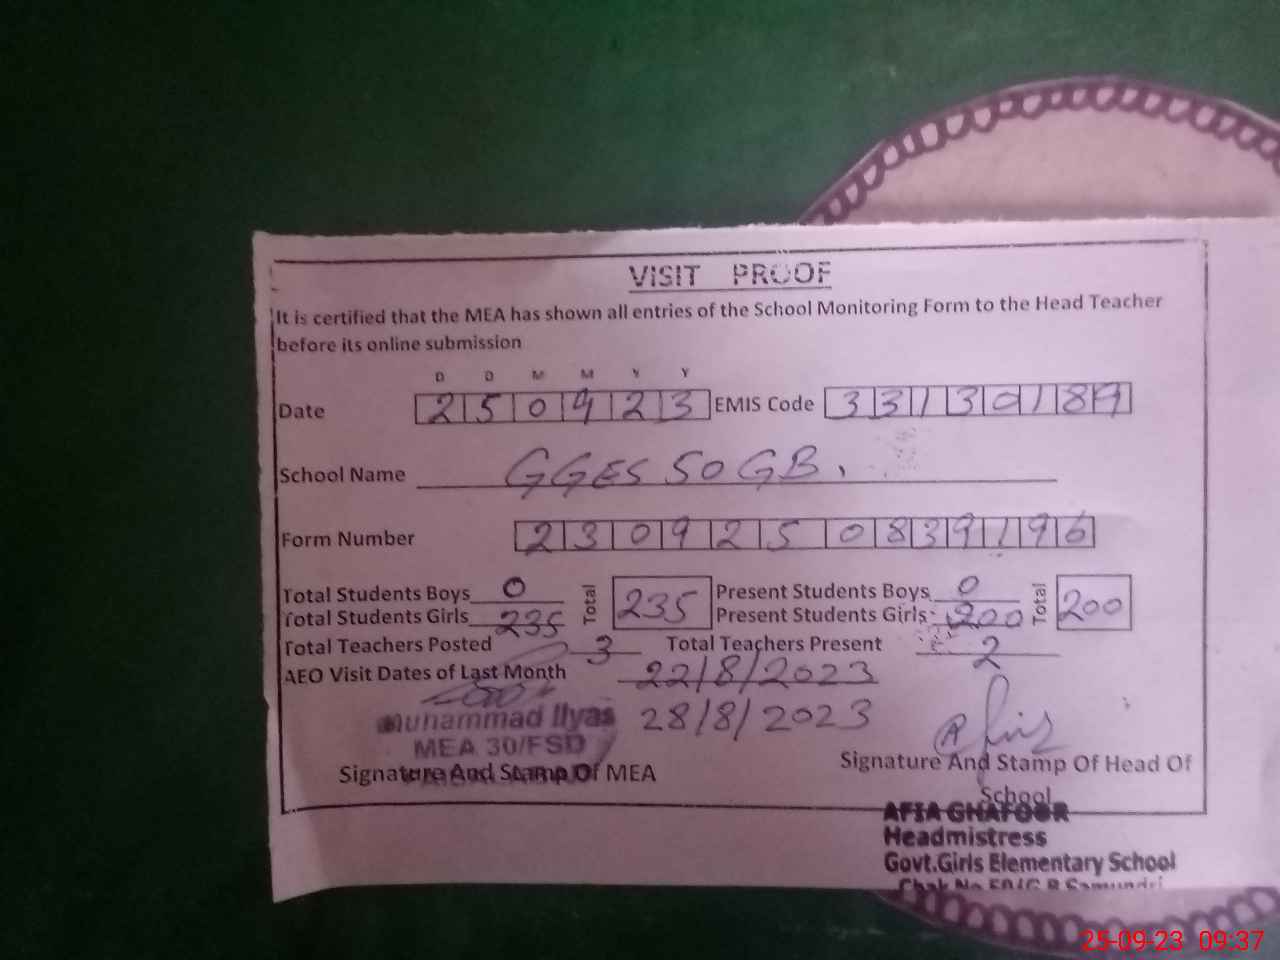 VISIT PROOF
It is certified that the MEA has shown all entries of the School Monitoring Form to the Head Teacher
before its online submission
D D M M Y Y
Date 2 5 0 9 2 3 EMIS Code 3 3 1 3 0 1 8 9
School Name GGES 50 GB.
Form Number 2 3 0 9 2 5 0 8 3 9 1 9 6
Total Students Boys 0 Total 235 Present Students Boys 0 Total 200
Total Students Girls 235 Present Students Girls 200
Total Teachers Posted 3 Total Teachers Present 2
AEO Visit Dates of Last Month 22/8/2023
28/8/2023
Muhammad Ilyas
MEA 30/FSD
Signature And Stamp Of MEA
Signature And Stamp Of Head Of
School
AFIA GHAFOOR
Headmistress
Govt.Girls Elementary School
Chak No 50/G B Samundri
25-09-23 09:37